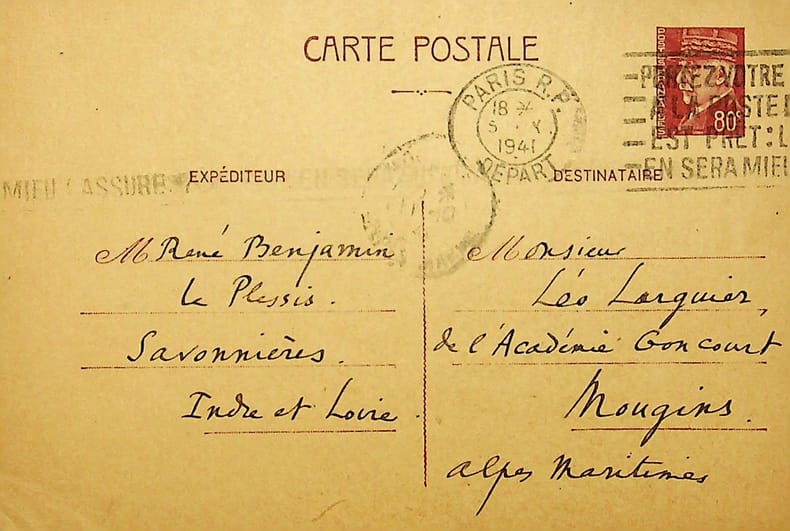 CARTE POSTALE
POSTES FRANÇAISES
80c
PARIS R.P.
18
1941
DEPART
VOTRE
A LA POSTE
EST PRET: L
EN SERA MIEU
EXPÉDITEUR
DESTINATAIRE
MIEUX ASSURE
M René Benjamin
Le Plessis.
Savonnières.
Indre et Loire
Monsieur
Léo Larguier,
de l'Académie Goncourt
Mougins.
Alpes Maritimes